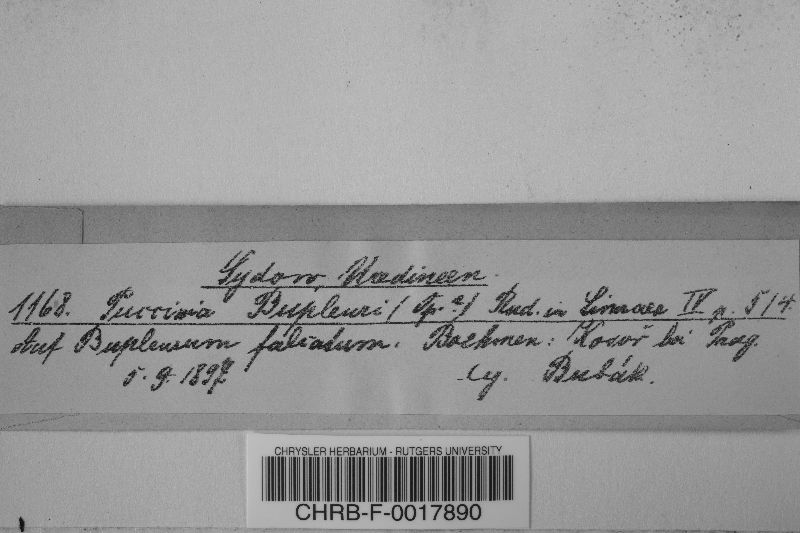 Sydow, Uredineen.
1168. Puccinia Bupleuri / Op. a/ Rud. in Linnaea IV p. 514
Auf Bupleurum falcatum. Boehmen: Kosoř bei Prag.
5. 9. 1897 lg. Bubák.
CHRYSLER HERBARIUM - RUTGERS UNIVERSITY
CHRB-F-0017890